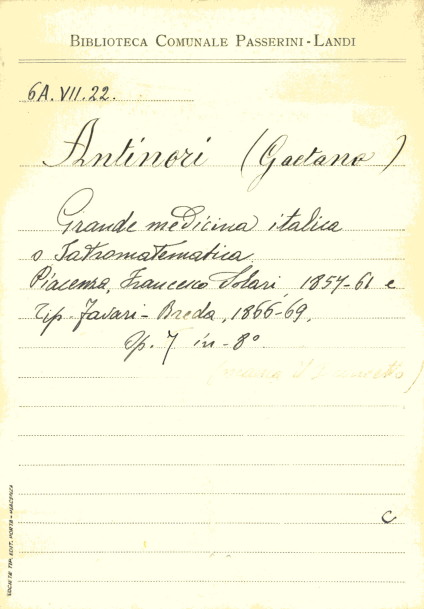 BIBLIOTECA COMUNALE PASSERINI-LANDI
6A.VII.22.
Antinori (Gaetano)
Grande medicina italica
o Iatromatematica.
Piacenza, Francesco Solari, 1857-61 e
Tip. Favari-Breda, 1866-69.
Op. 7 in-8°
(manca
c